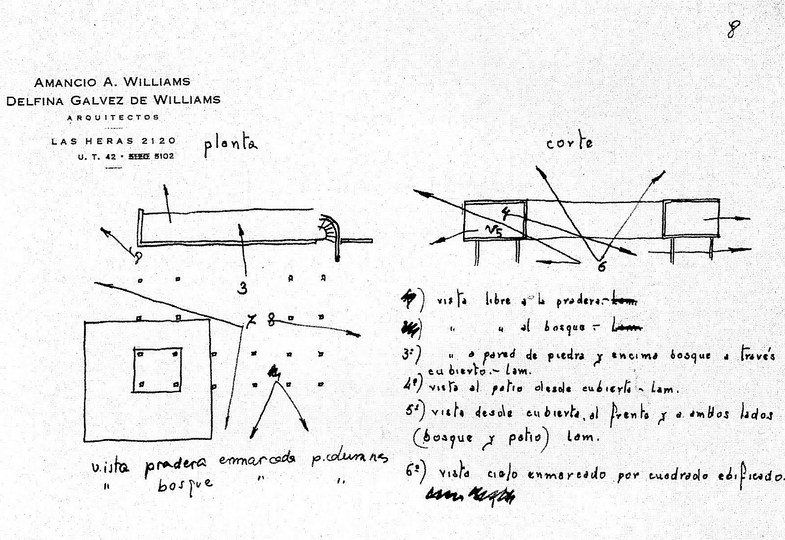 8
AMANCIO A. WILLIAMS
DELFINA GALVEZ DE WILLIAMS
ARQUITECTOS
LAS HERAS 2120
U. T. 42 - 5102
planta
corte
3
4
5
6
7 8
) vista libre a la pradera.-
) " " al bosque -
3º) " a pared de piedra y encima bosque a través
cubierto.- Lam.
4º) vista al patio desde cubierta - Lam.
5º) vista desde cubierta, al frente y a ambos lados
(bosque y patio) Lam.
6º) vista cielo enmarcado por cuadrado edificado.
vista pradera enmarcada p. columnas
" bosque " "